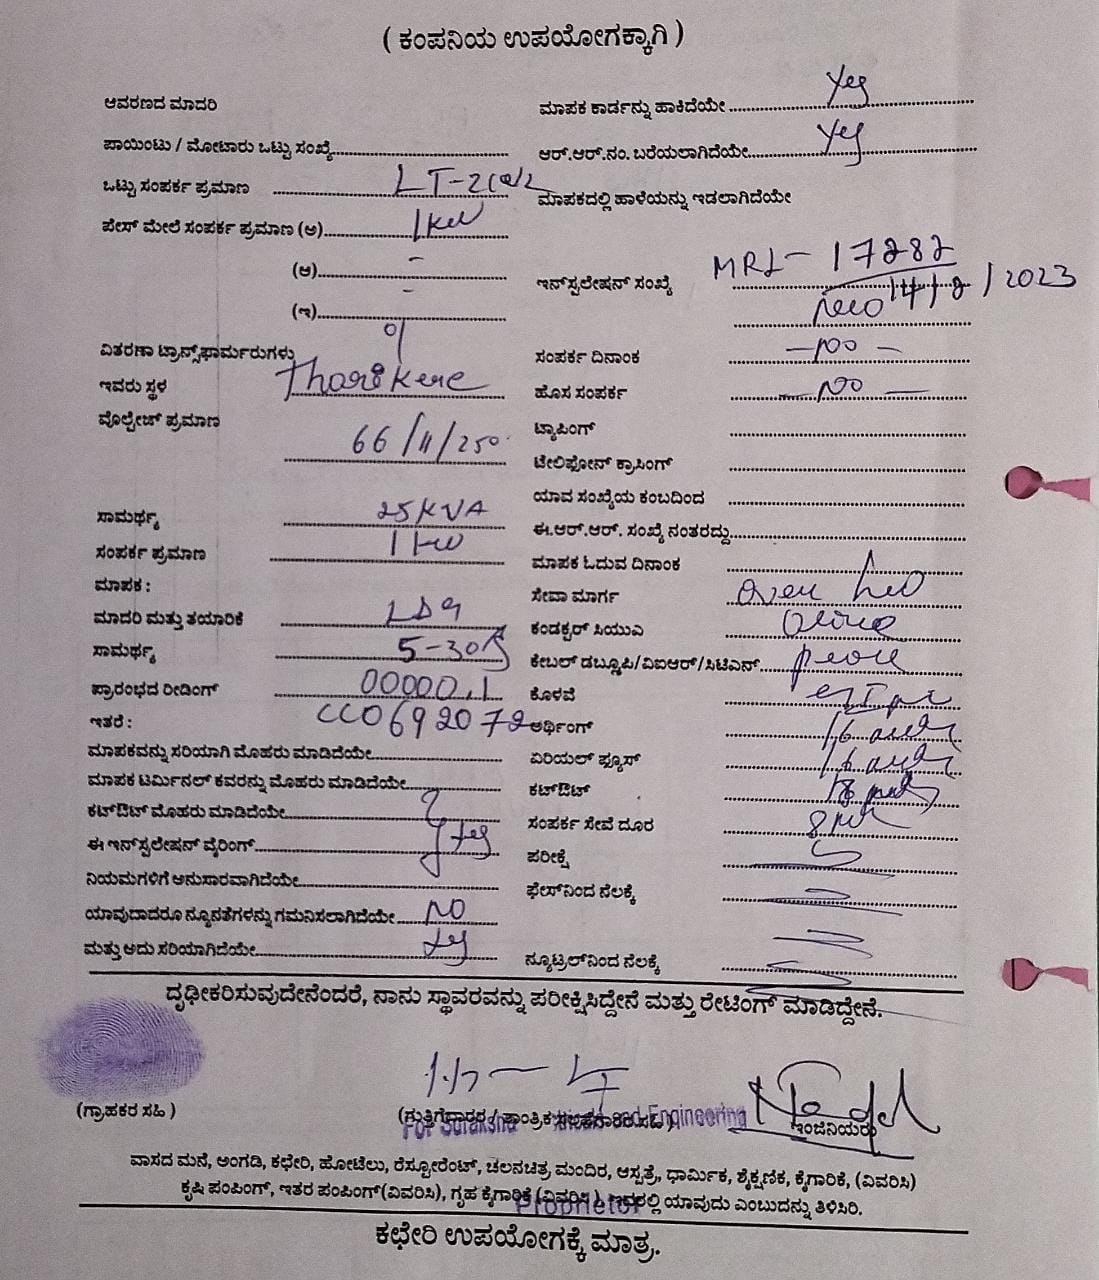 ( ಕಂಪನಿಯ ಉಪಯೋಗಕ್ಕಾಗಿ )
ಆವರಣದ ಮಾದರಿ
ಮಾಪಕ ಕಾರ್ಡನ್ನು ಹಾಕಿದೆಯೇ Yes
ಪಾಯಿಂಟು / ಮೋಟಾರು ಒಟ್ಟು ಸಂಖ್ಯೆ
ಆರ್.ಆರ್.ನಂ. ಬರೆಯಲಾಗಿದೆಯೇ Yes
ಒಟ್ಟು ಸಂಪರ್ಕ ಪ್ರಮಾಣ
ಮಾಪಕದಲ್ಲಿ ಹಾಳೆಯನ್ನು ಇಡಲಾಗಿದೆಯೇ
ಪೇಸ್ ಮೇಲೆ ಸಂಪರ್ಕ ಪ್ರಮಾಣ (ಅ) 1kw
(ಆ) -
ಇನ್‌ಸ್ಟಲೇಷನ್ ಸಂಖ್ಯೆ MRL - 17282
/ 2023
(ಇ) -
ವಿತರಣಾ ಟ್ರಾನ್ಸ್‌ಫಾರ್ಮರುಗಳು
ಸಂಪರ್ಕ ದಿನಾಂಕ
ಇವರು ಸ್ಥಳ Tharikere
ಹೊಸ ಸಂಪರ್ಕ
ವೊಲ್ಟೇಜ್ ಪ್ರಮಾಣ 66/11/250
ಟ್ಯಾಪಿಂಗ್
ಟೇಲಿಫೋನ್ ಕ್ರಾಸಿಂಗ್
ಯಾವ ಸಂಖ್ಯೆಯ ಕಂಬದಿಂದ
ಸಾಮರ್ಥ್ಯ 25KVA
ಈ.ಆರ್.ಆರ್. ಸಂಖ್ಯೆ ನಂತರದ್ದು
ಸಂಪರ್ಕ ಪ್ರಮಾಣ 1 kw
ಮಾಪಕ ಓದುವ ದಿನಾಂಕ
ಮಾಪಕ :
ಸೇವಾ ಮಾರ್ಗ
ಮಾದರಿ ಮತ್ತು ತಯಾರಿಕೆ
ಕಂಡಕ್ಟರ್ ಸಿಯುಎ
ಸಾಮರ್ಥ್ಯ 5-30A
ಕೇಬಲ್ ಡಬ್ಲೂಪಿ/ವಿಐಆರ್/ಸಿಟಿಎಸ್
ಪ್ರಾರಂಭದ ರೀಡಿಂಗ್ 00000.1
ಕೊಳವೆ
ಇತರೆ : CC0692072
ಅರ್ಥಿಂಗ್
ಮಾಪಕವನ್ನು ಸರಿಯಾಗಿ ಮೊಹರು ಮಾಡಿದೆಯೇ
ಏರಿಯಲ್ ಫ್ಯೂಸ್
ಮಾಪಕ ಟರ್ಮಿನಲ್ ಕವರನ್ನು ಮೊಹರು ಮಾಡಿದೆಯೇ
ಕಟ್‌ಔಟ್
ಕಟ್‌ಔಟ್ ಮೊಹರು ಮಾಡಿದೆಯೇ
ಸಂಪರ್ಕ ಸೇವೆ ದೂರ
ಈ ಇನ್‌ಸ್ಟಲೇಷನ್ ವೈರಿಂಗ್ Yes
ಪರೀಕ್ಷೆ
ನಿಯಮಗಳಿಗೆ ಅನುಸಾರವಾಗಿದೆಯೇ
ಫೇಸ್‌ನಿಂದ ನೆಲಕ್ಕೆ
ಯಾವುದಾದರೂ ನ್ಯೂನತೆಗಳನ್ನು ಗಮನಿಸಲಾಗಿದೆಯೇ NO
ಮತ್ತು ಅದು ಸರಿಯಾಗಿದೆಯೇ Yes
ನ್ಯೂಟ್ರಲ್‌ನಿಂದ ನೆಲಕ್ಕೆ
ದೃಢೀಕರಿಸುವುದೇನೆಂದರೆ, ನಾನು ಸ್ಥಾವರವನ್ನು ಪರೀಕ್ಷಿಸಿದ್ದೇನೆ ಮತ್ತು ರೇಟಿಂಗ್ ಮಾಡಿದ್ದೇನೆ.
(ಗ್ರಾಹಕರ ಸಹಿ )
(ಗುತ್ತಿಗೆದಾರರ / ತಾಂತ್ರಿಕ
ಇಂಜಿನಿಯರು
For Suraksha and Engineering
ವಾಸದ ಮನೆ, ಅಂಗಡಿ, ಕಛೇರಿ, ಹೋಟೆಲು, ರೆಸ್ಟೋರೆಂಟ್, ಚಲನಚಿತ್ರ ಮಂದಿರ, ಆಸ್ಪತ್ರೆ, ಧಾರ್ಮಿಕ, ಶೈಕ್ಷಣಿಕ, ಕೈಗಾರಿಕೆ, (ವಿವರಿಸಿ)
ಕೃಷಿ ಪಂಪಿಂಗ್, ಇತರ ಪಂಪಿಂಗ್(ವಿವರಿಸಿ), ಗೃಹ ಕೈಗಾರಿಕೆ (ವಿವರಿಸಿ), ಇದರಲ್ಲಿ ಯಾವುದು ಎಂಬುದನ್ನು ತಿಳಿಸಿರಿ.
Proprietor
ಕಛೇರಿ ಉಪಯೋಗಕ್ಕೆ ಮಾತ್ರ.